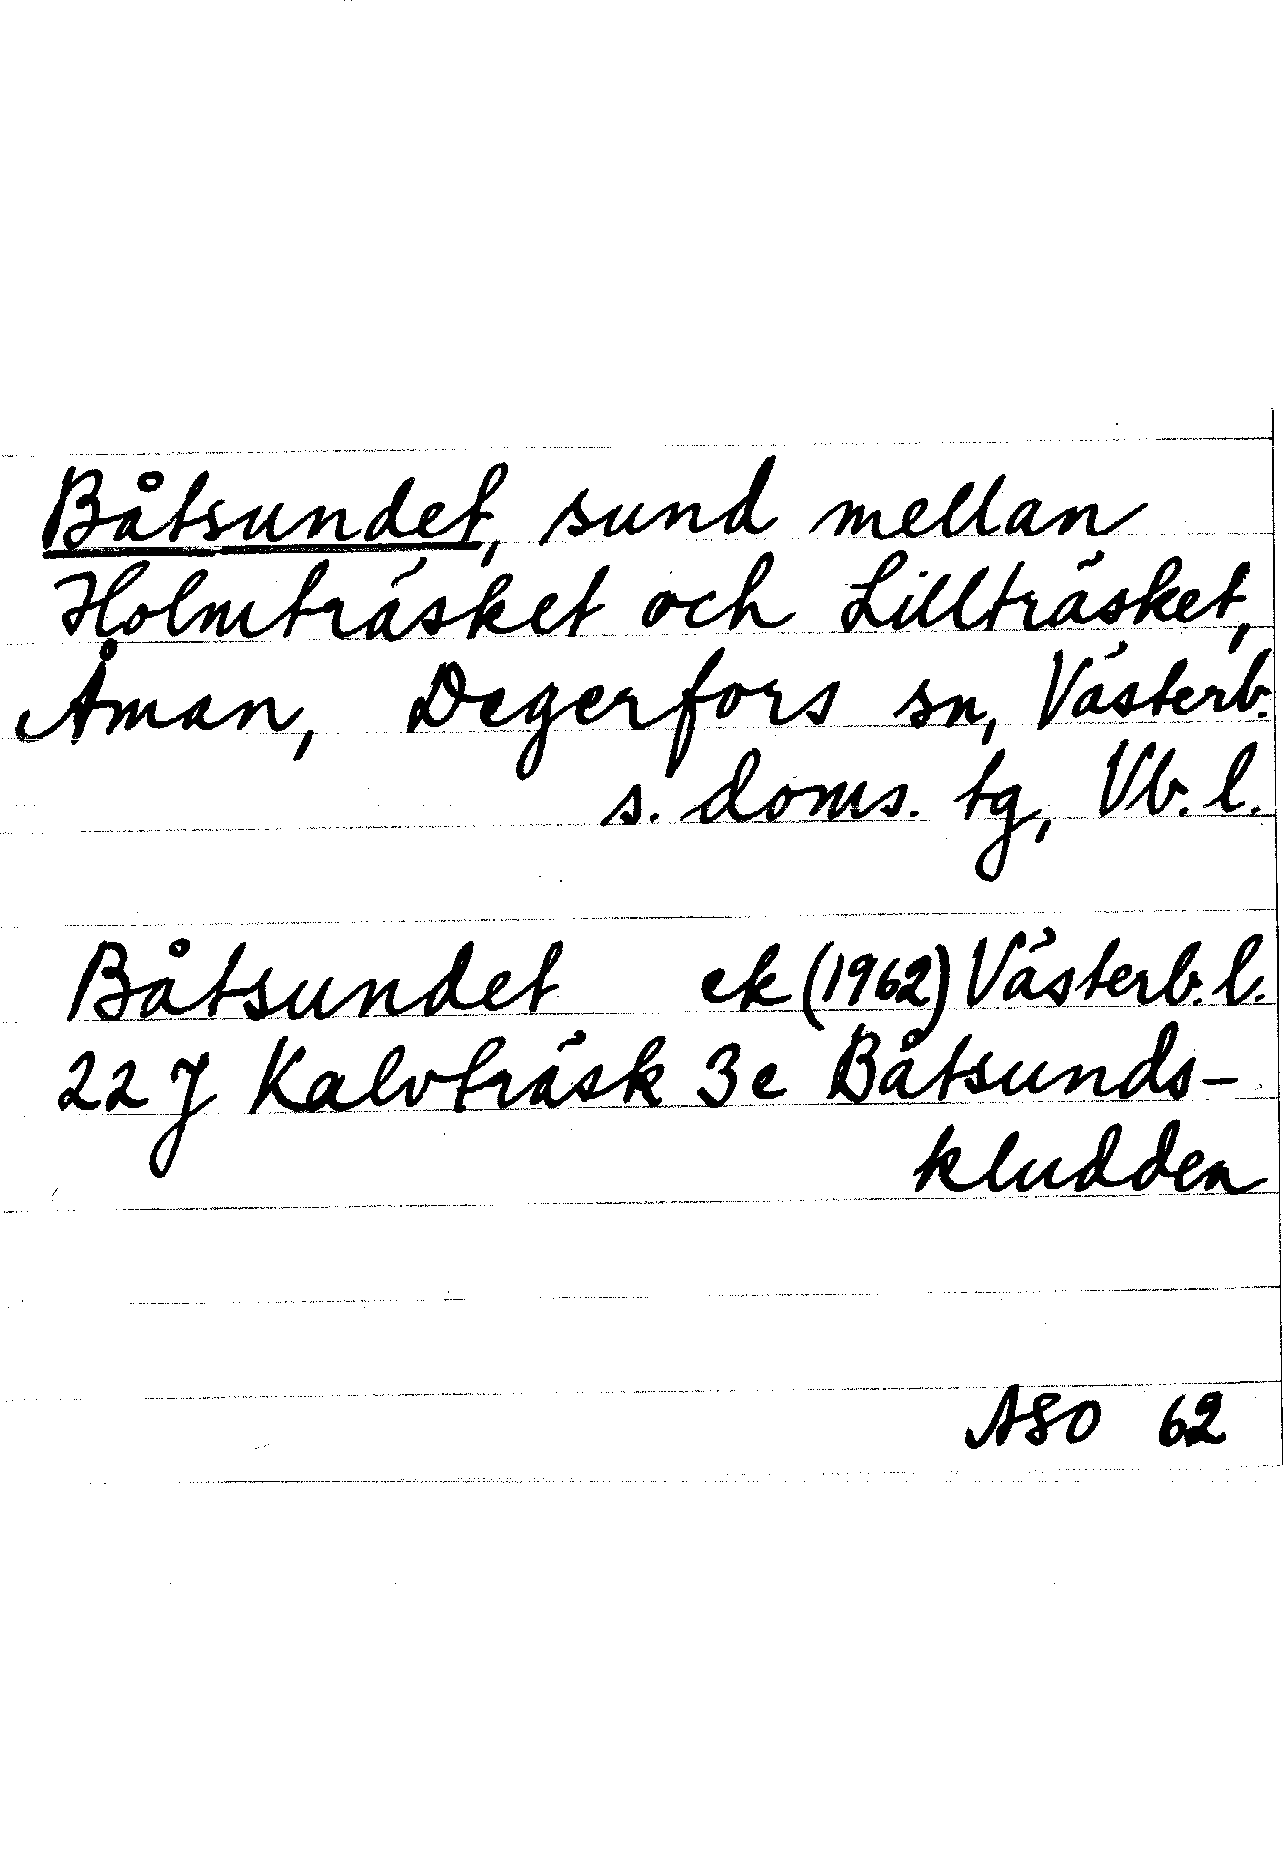 Båtsundet, sund mellan
Holmträsket och Lillträsket,
Åman, Degerfors sn, Västerb.
s. doms. tg, Vb. l.
Båtsundet ek (1962) Västerb. l.
22 J Kalvträsk 3e Båtsunds-
kludden
ASO 62